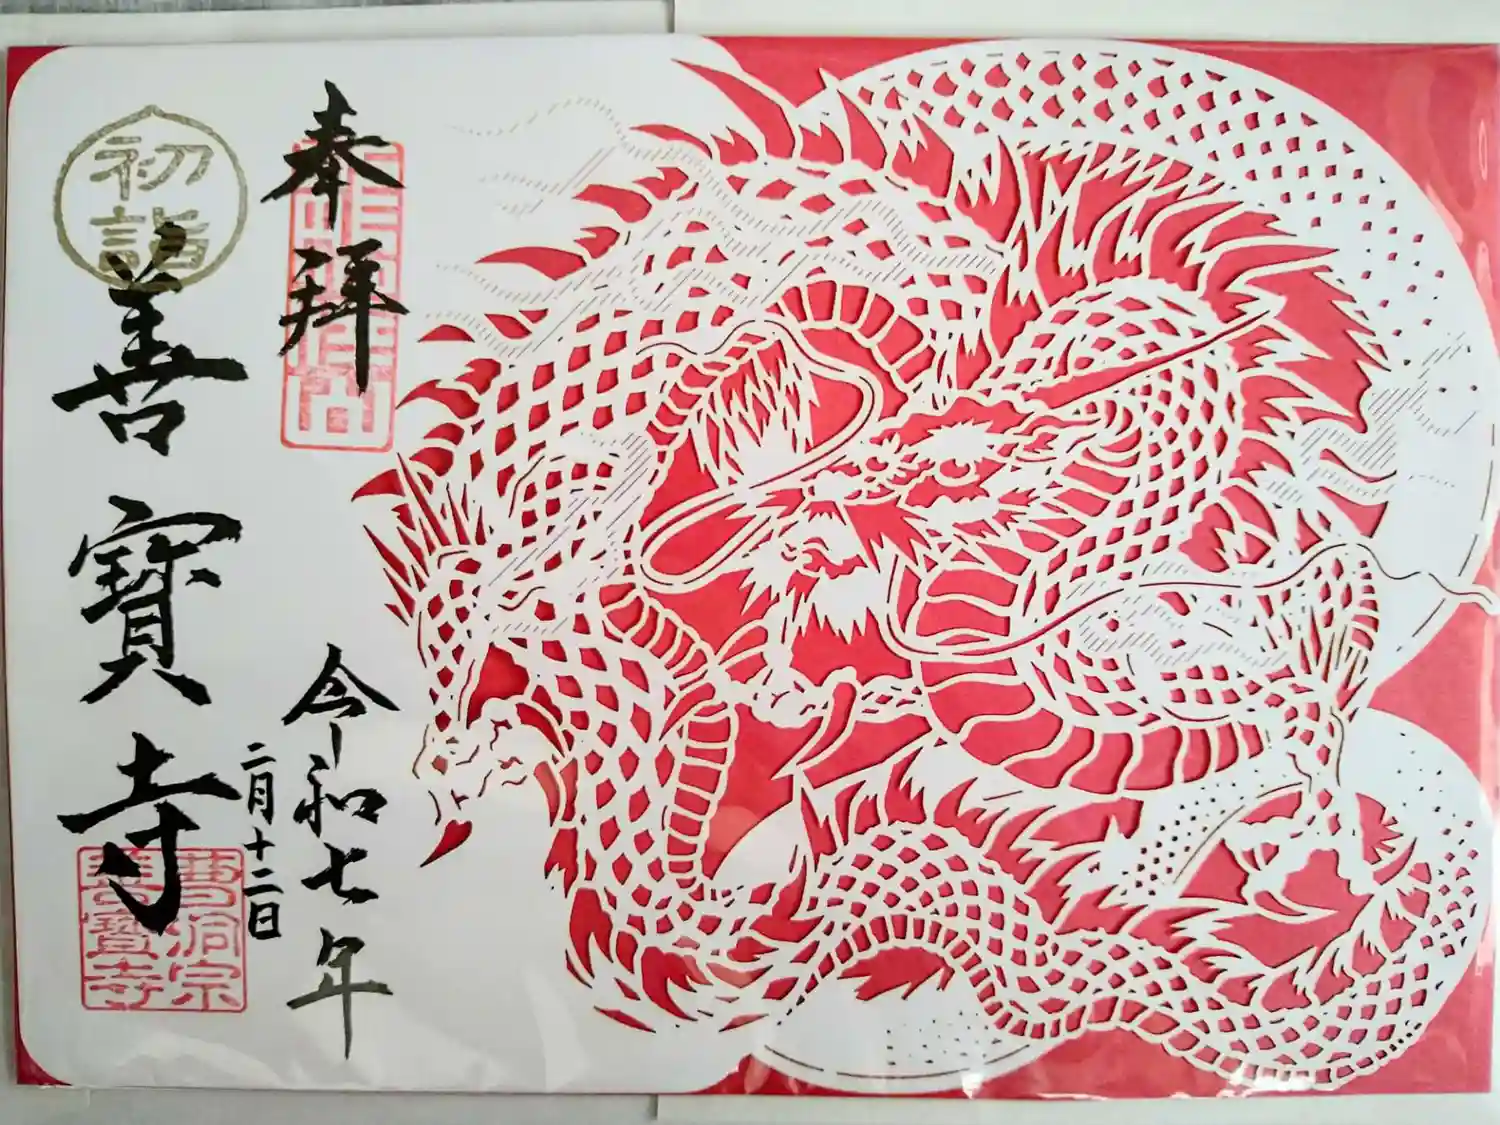 奉拝
令和七年
二月十二日
初詣
善寳寺
曹洞宗
善寳寺